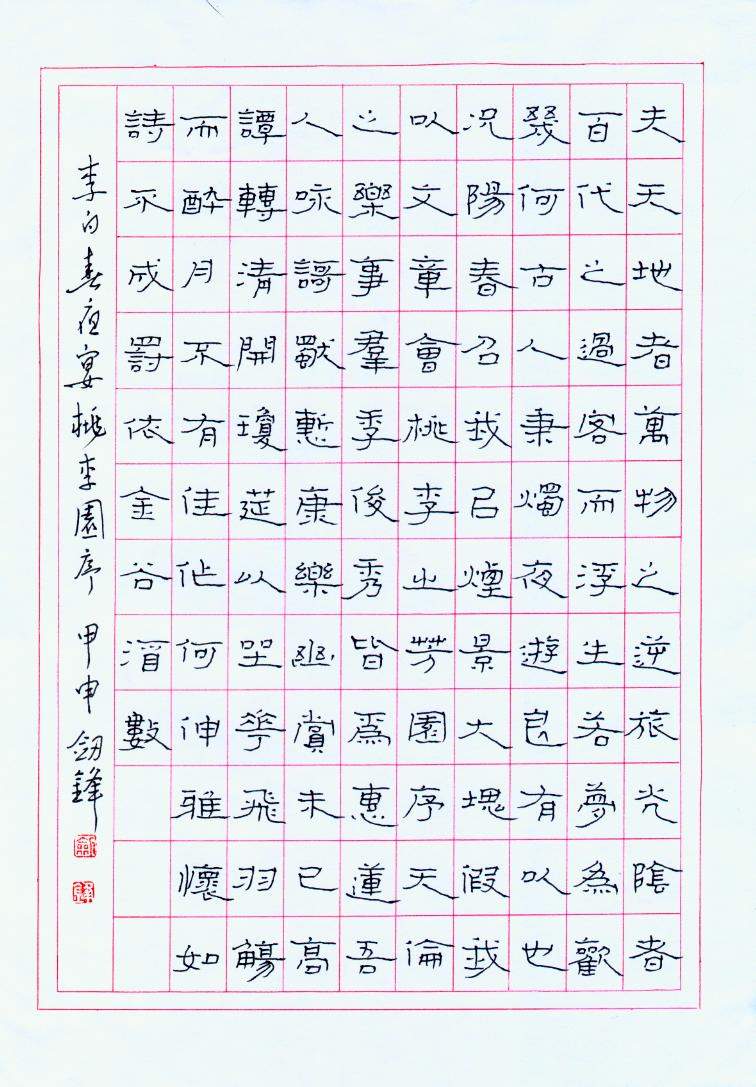 夫天地者萬物之逆旅光陰者
百代之過客而浮生若夢為歡
幾何古人秉燭夜遊良有以也
況陽春召我以煙景大塊假我
以文章會桃李之芳園序天倫
之樂事羣季俊秀皆爲惠連吾
人咏謌獨慙康樂幽賞未已高
譚轉清開瓊莚以坐華飛羽觴
而醉月不有佳作何伸雅懷如
詩不成罰依金谷酒數
李白春夜宴桃李園序 甲申 釼鋒